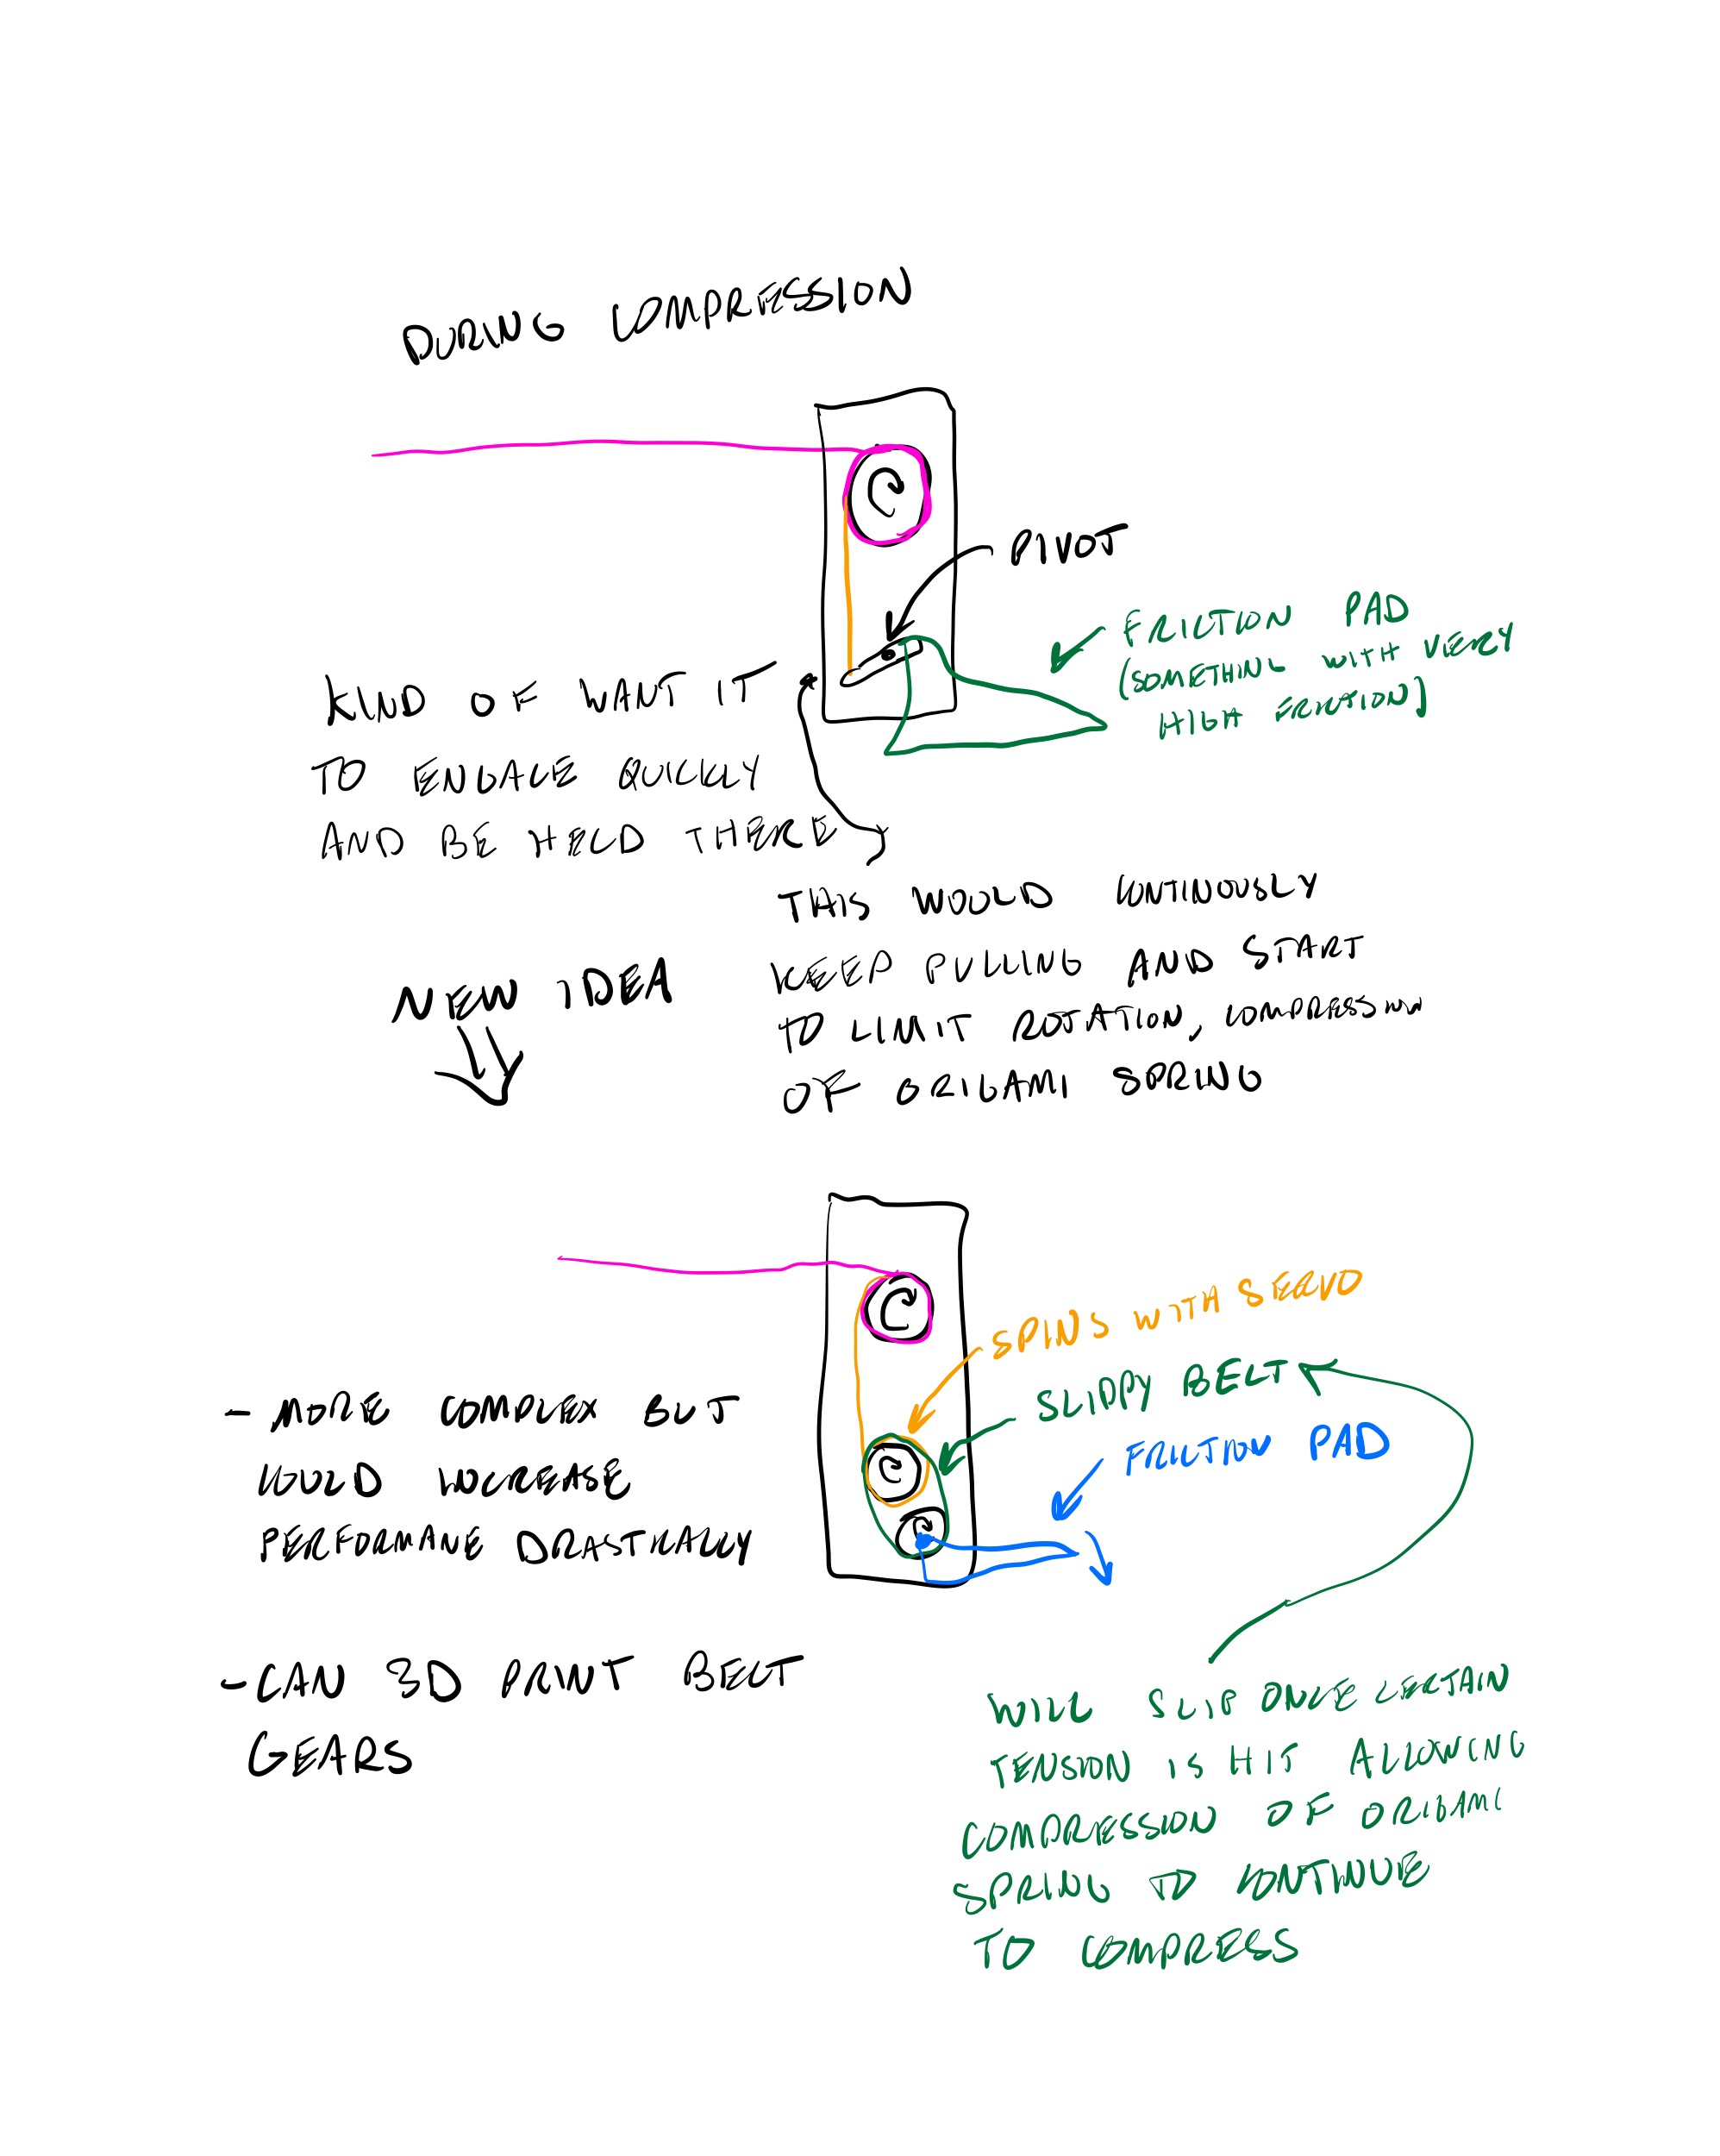 DURING COMPRESSION
PIVOT
FRICTION PAD
(SOMETHING WITH VERY
HIGH FRICTION)
KIND OF WANT IT
TO ENGAGE QUICKLY
AND BE HELD THERE
THIS WOULD CONTINOUSLY
KEEP PULLING AND START
TO LIMIT ROTATION, COMPRESSION
OF ORIGAMI SPRING
NEW IDEA
SPINS WITH SERVO
SLIPPY BELT
FRICTION PAD
- MORE COMPLEX BUT
COULD INCREASE
PERFORMANE DRASTICALLY
- CAN 3D PRINT BELT
GEARS
WILL SLIP ONCE CERTAIN
TENSION IS HIT ALLOWING
COMPRESSION OF ORIGAMI
SPRING TO CONTINUE
TO COMPRESS